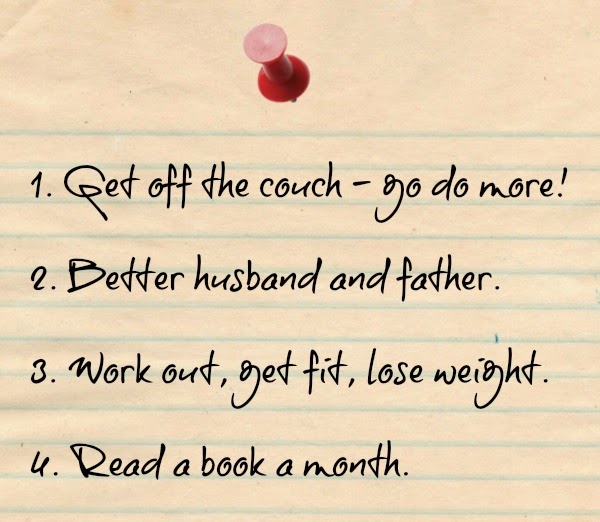 1. Get off the couch - go do more!
2. Better husband and father.
3. Work out, get fit, lose weight.
4. Read a book a month.